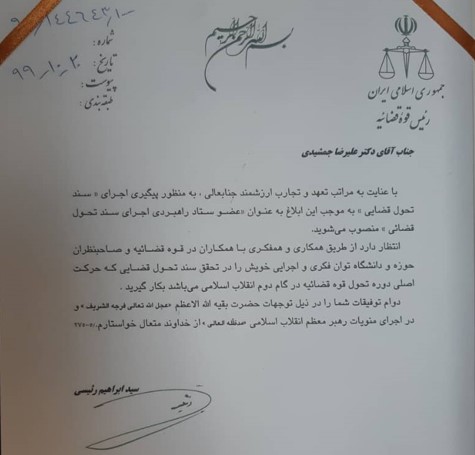 بسم الله الرحمن الرحیم
جمهوری اسلامی ایران
رئیس قوهٔ قضائیه
شماره:
تاریخ: ۹۹-۱۰-۲۰
پیوست:
طبقه‌بندی:
جناب آقای دکتر علیرضا جمشیدی
با عنایت به مراتب تعهد و تجارب ارزشمند جنابعالی ، به منظور پیگیری اجرای « سند
تحول قضایی » به موجب این ابلاغ به عنوان «عضو ستاد راهبردی اجرای سند تحول
قضائی » منصوب می‌شوید.
انتظار دارد از طریق همکاری و همفکری با همکاران در قوه قضائیه و صاحبنظران
حوزه و دانشگاه توان فکری و اجرایی خویش را در تحقق سند تحول قضایی که حرکت
اصلی دوره تحول قوه قضائیه در گام دوم انقلاب اسلامی می‌باشد بکار گیرید .
دوام توفیقات شما را در ذیل توجهات حضرت بقیه الله الاعظم «عجل الله تعالی فرجه الشریف» و
در اجرای منویات رهبر معظم انقلاب اسلامی «مدظله العالی» از خداوند متعال خواستارم.
سید ابراهیم رئیسی